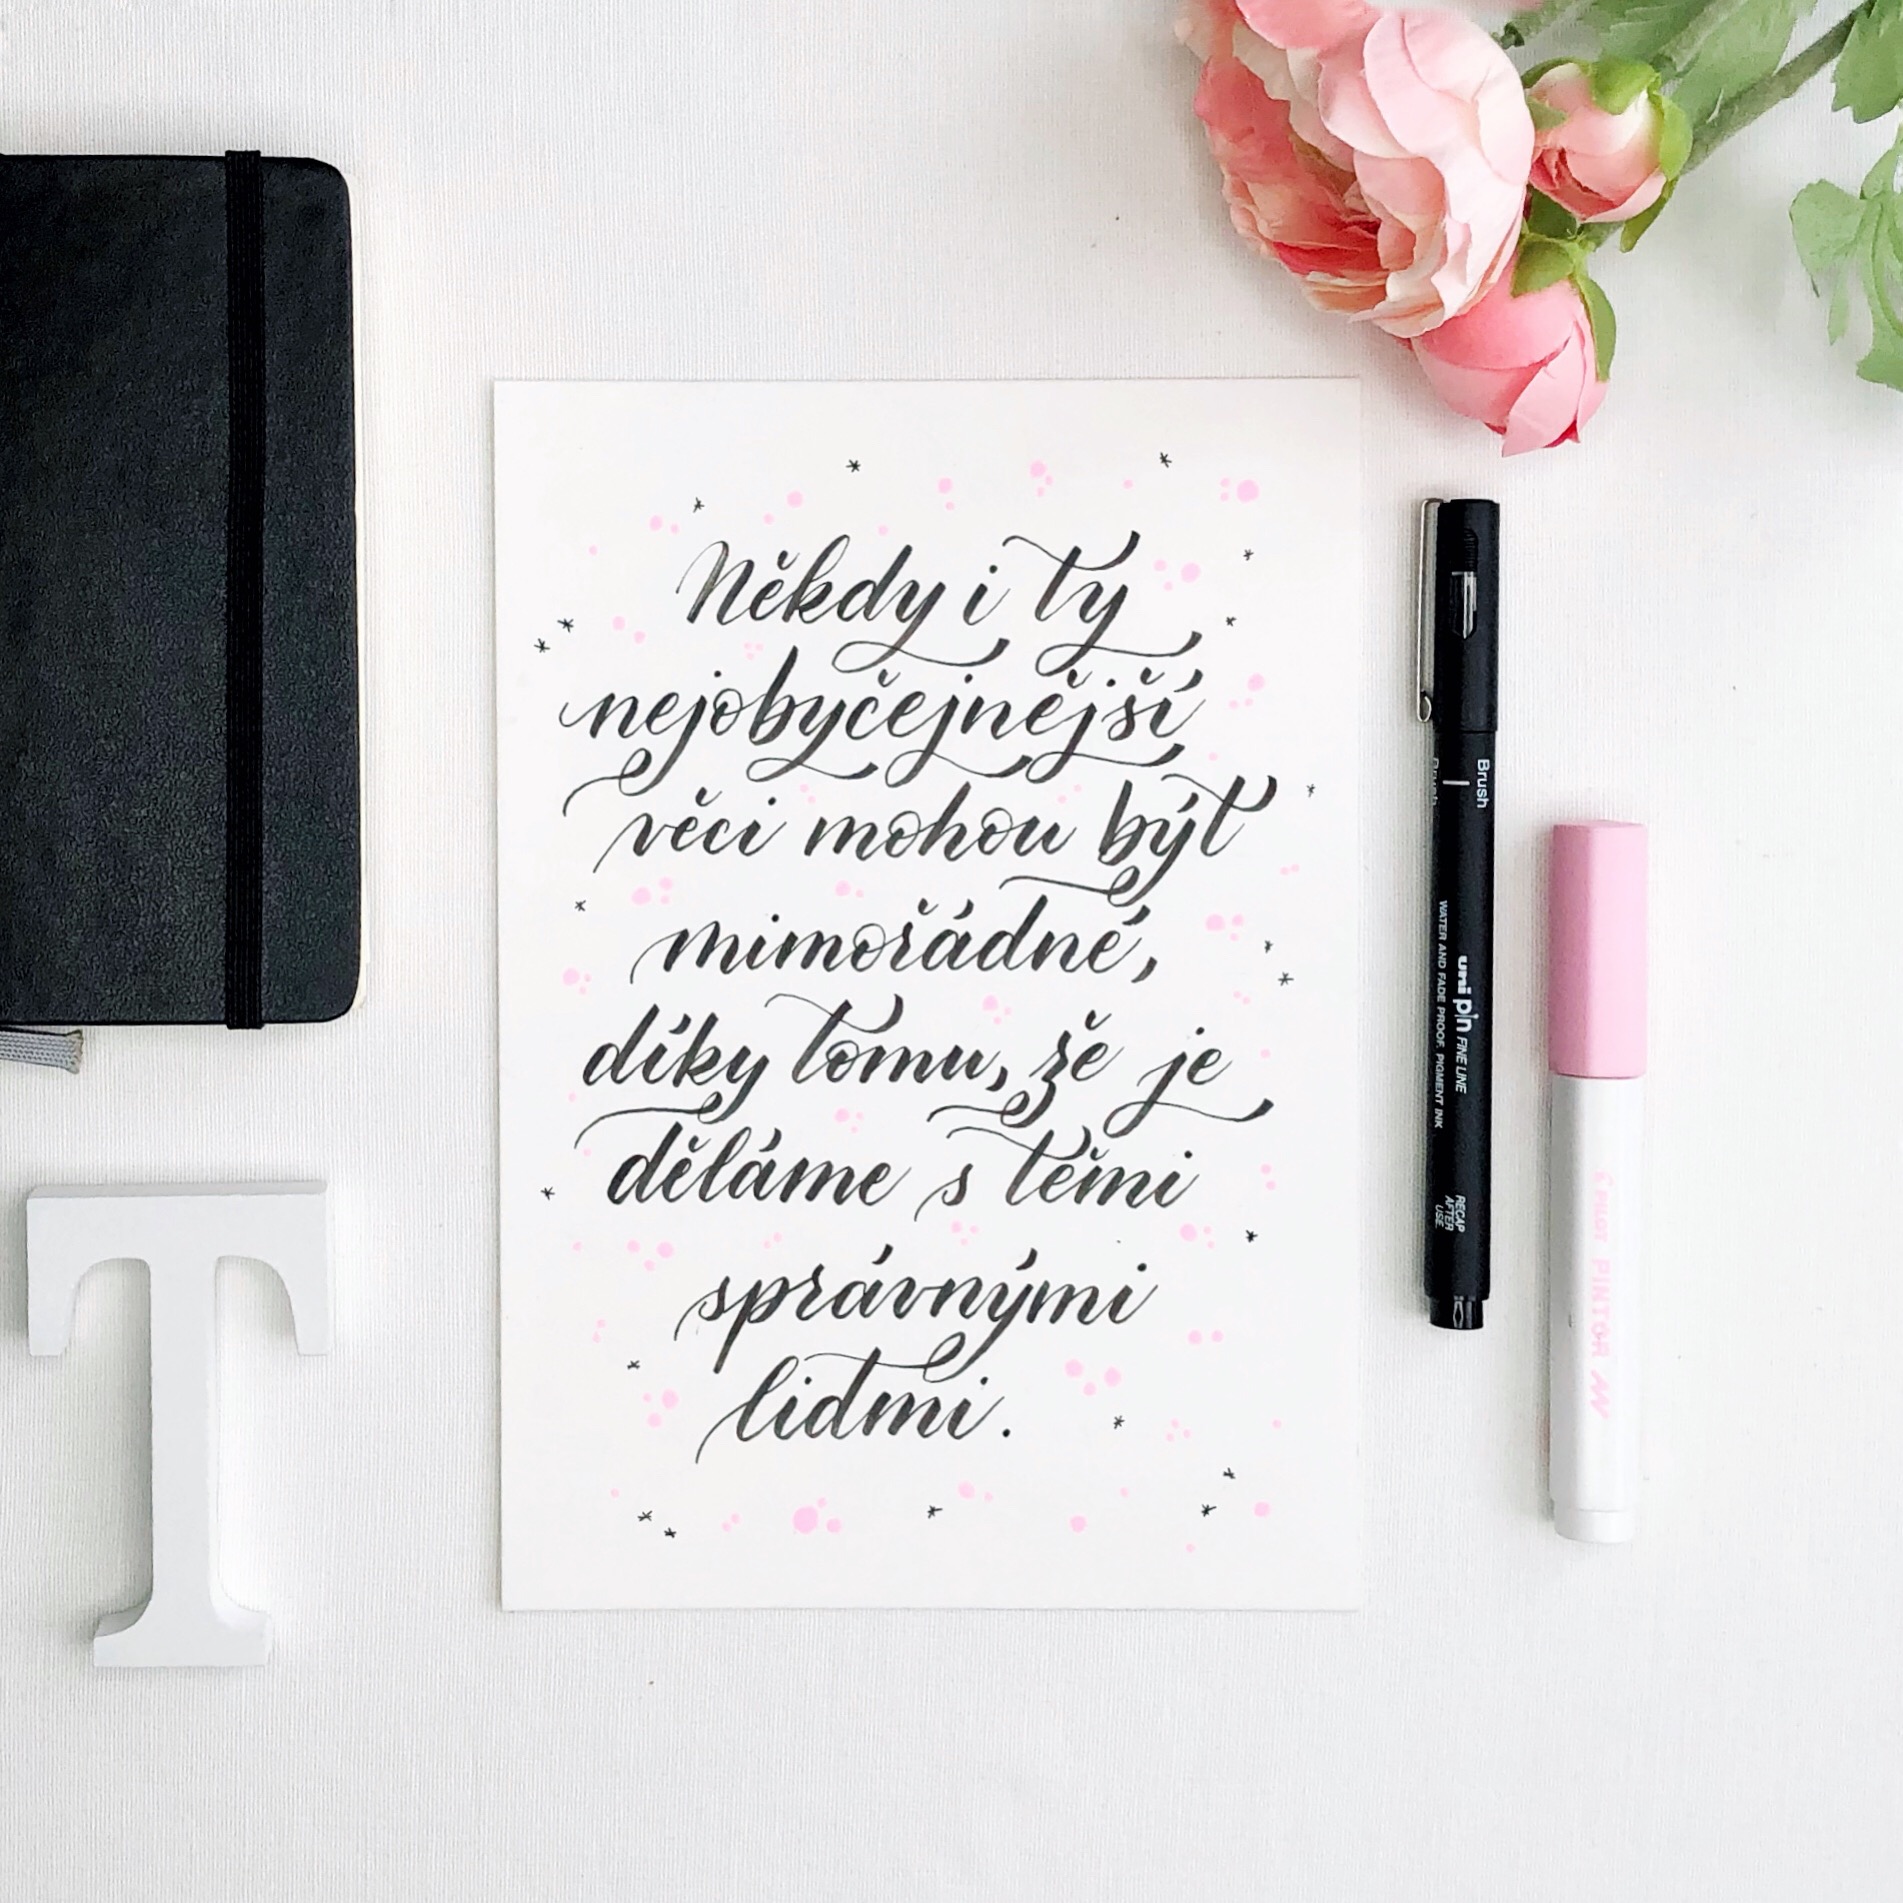 Někdy i ty
nejobyčejnější
věci mohou být
mimořádné,
díky tomu, že je
děláme s těmi
správnými
lidmi.
Brush
Brush
uni pin FINE LINE
WATER AND FADE PROOF, PIGMENT INK
RECAP
AFTER
USE
PILOT PINTOR M
T